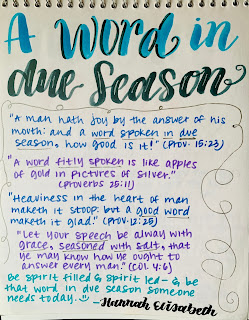 A Word in
due Season
"A man hath joy by the answer of his
mouth: and a word spoken in due
season, how good is it!" (Prov. 15:23)
"A word fitly spoken is like apples
of gold in pictures of silver."
(Proverbs 25:11)
"Heaviness in the heart of man
maketh it stoop: but a good word
maketh it glad." (Prov. 12:25)
"Let your speech be alway with
grace, seasoned with salt, that
ye may know how ye ought to
answer every man." (Col. 4:6)
Be spirit filled & spirit led - & be
that word in due season someone
needs today. :) -Hannah Elisabeth